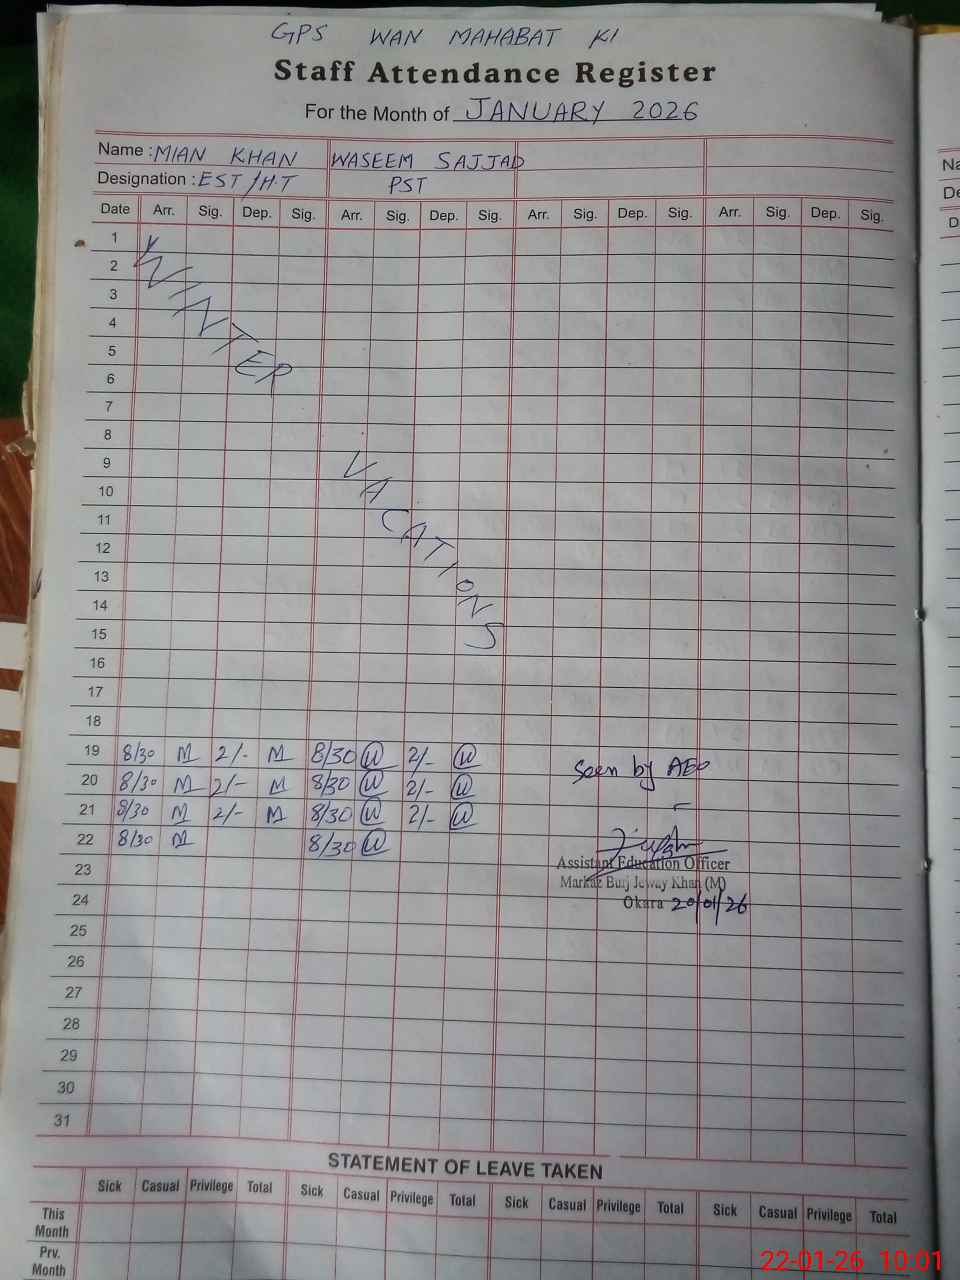 GPS WAN MAHABAT KI
Staff Attendance Register
For the Month of JANUARY 2026
Name : MIAN KHAN WASEEM SAJJAD
Designation : EST/H.T PST
Date Arr. Sig. Dep. Sig. Arr. Sig. Dep. Sig. Arr. Sig. Dep. Sig. Arr. Sig. Dep. Sig.
1
2
3
4
5
6
WINTER
7
8
9
10
11
12
13
14
15
VACATIONS
16
17
18
19 8/30 M 2/- M 8/30 W 2/- W
20 8/30 M 2/- M 8/30 W 2/- W
21 8/30 M 2/- M 8/30 W 2/- W
22 8/30 M 8/30 W
Seen by AEO
Assistant Education Officer
Markaz Burj Jeway Khan (M)
Okara 20/01/26
23
24
25
26
27
28
29
30
31
STATEMENT OF LEAVE TAKEN
Sick Casual Privilege Total Sick Casual Privilege Total Sick Casual Privilege Total Sick Casual Privilege Total
This Month
Prv. Month
Na
De
D
22-01-26 10:01